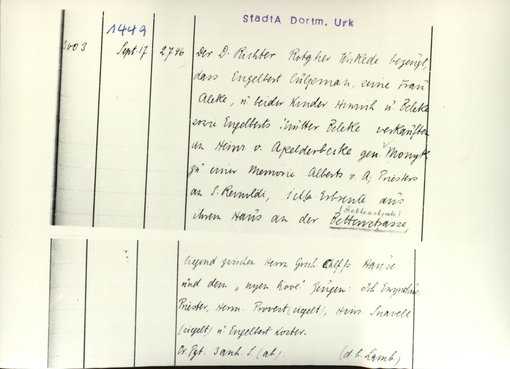 StadtA Dortm. Urk
1449
Sept. 17 2746 Der D. Richter Rotgher Wickede bezeugt,
dass Engelbert Culpman, seine Frau
Aleke, u beider Kinder Hinrich u Beleke
sowie Engelberts Mutter Beleke verkauften
an Henr v. Apelderbeke gen. Monyk
zu einer Memorie Alberts v. A; Priesters
an S. Reinoldi, Erbrente aus
ihrem Haus an der Bettenstrasse
liegend zwischen Herm Hause
und dem "nyen hove" Zeugen:
Priester, Herm. Provest (siegelt), Hinr Snavell
(siegelt) u Engelbert Koster.
Or. Pgt. 3 anh. S. (ab).